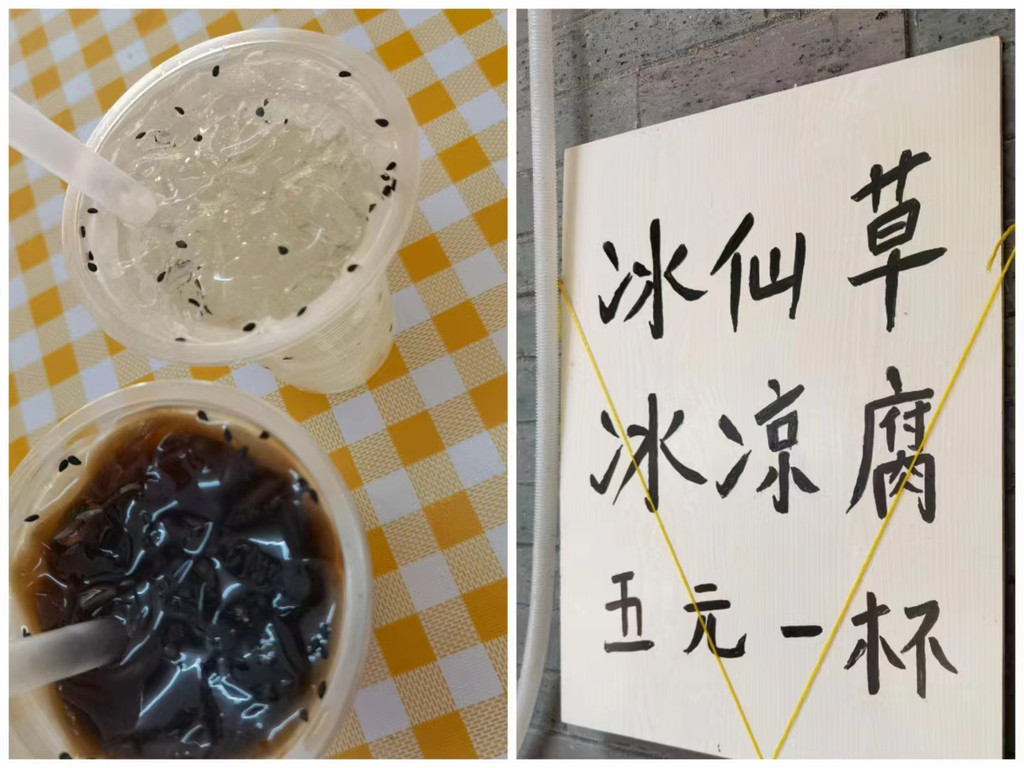 冰仙草
冰凉腐
五元一杯